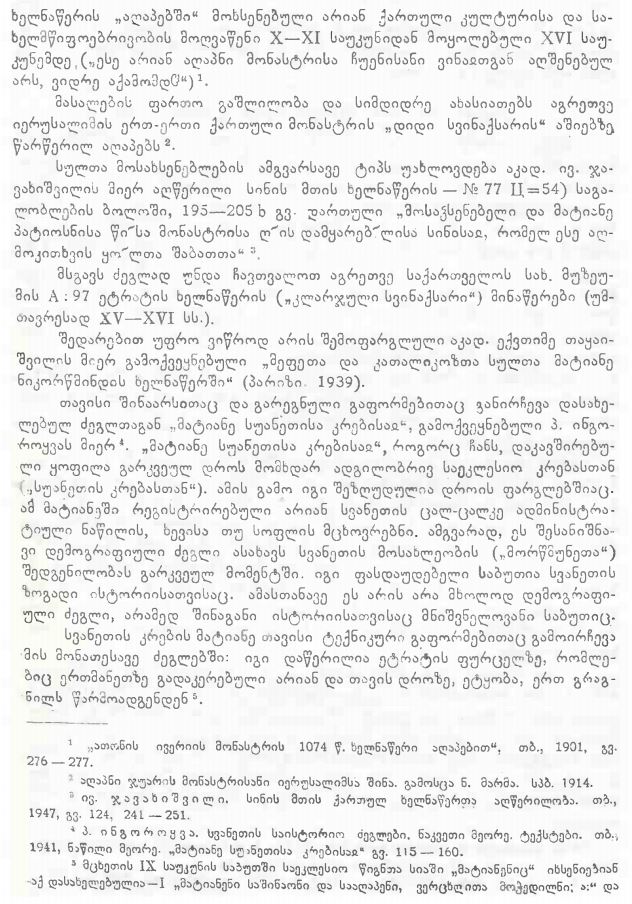 ხელნაწერის „აღაპებში“ მოხსენებული არიან ქართული კულტურისა და სა-
ხელმწიფოებრივობის მოღვაწენი X—XI საუკუნიდან მოყოლებული XVI საუ-
კუნემდე („ესე არიან აღაპნი მონასტრისა ჩუენისანი ვინაჲთგან აღშენებულ
არს, ვიდრე აქამომდე“)¹.
მასალების ფართო გაშლილობა და სიმდიდრე ახასიათებს აგრეთვე
იერუსალიმის ერთ-ერთი ქართული მონასტრის „დიდი სვინაქსარის“ აშიებზე
წარწერილ აღაპებს².
სულთა მოსახსენებლების ამგვარსავე ტიპს უახლოვდება აკად. ივ. ჯა-
ვახიშვილის მიერ აღწერილი სინის მთის ხელნაწერის — № 77 Ц=54) საგა-
ლობლების ბოლოში, 195—205 ხ გვ. დართული „მოსაჴსენებელი და მატიანე
პატიოსნისა წი˜სა მონასტრისა ღ˜ის დამყარებ˜ლისა სინისაჲ, რომელ ესე აღ-
მოკითხვის ყო˜ლთა შაბათთა“ ³.
მსგავს ძეგლად უნდა ჩავთვალოთ აგრეთვე საქართველოს სახ. მუზეუ-
მის A : 97 ეტრატის ხელნაწერის („კლარჯული სვინაქსარი“) მინაწერები (უმ-
თავრესად XV—XVI სს.).
შედარებით უფრო ვიწროდ არის შემოფარგლული აკად. ექვთიმე თაყაი-
შვილის მიერ გამოქვეყნებული „მეფეთა და კათალიკოზთა სულთა მატიანე
ნიკორწმინდის ხელნაწერში“ (პარიზი. 1939).
თავისი შინაარსითაც და გარეგნული გაფორმებითაც განირჩევა დასახე-
ლებულ ძეგლთაგან „მატიანე სუანეთისა კრებისაჲ“, გამოქვეყნებული პ. ინგო-
როყვას მიერ⁴. „მატიანე სუანეთისა კრებისაჲ“, როგორც ჩანს, დაკავშირებუ-
ლი ყოფილა გარკვეულ დროს მომხდარ ადგილობრივ საეკლესიო კრებასთან
(„სუანეთის კრებასთან“). ამის გამო იგი შეზღუდულია დროის ფარგლებშიაც.
ამ მატიანეში რეგისტრირებული არიან სვანეთის ცალ-ცალკე ადმინისტრა-
ტიული ნაწილის, ხევისა თუ სოფლის მცხოვრებნი. ამგვარად, ეს შესანიშნა-
ვი დემოგრაფიული ძეგლი ასახავს სვანეთის მოსახლეობის („მორწმუნეთა“)
შედგენილობას გარკვეულ მომენტში. იგი ფასდაუდებელი საბუთია სვანეთის
ზოგადი ისტორიისათვისაც. ამასთანავე ეს არის არა მხოლოდ დემოგრაფი-
ული ძეგლი, არამედ შინაგანი ისტორიისათვისაც მნიშვნელოვანი საბუთიც.
სვანეთის კრების მატიანე თავისი ტექნიკური გაფორმებითაც გამოირჩევა
მის მონათესავე ძეგლებში: იგი დაწერილია ეტრატის ფურცელზე, რომლე-
ბიც ერთმანეთზე გადაკერებული არიან და თავის დროზე, ეტყობა, ერთ გრაგ-
ნილს წარმოადგენდენ⁵.
¹ „ათონის ივერიის მონასტრის 1074 წ. ხელნაწერი აღაპებით“, თბ., 1901, გვ.
276—277.
² აღაპნი ჯუარის მონასტრისანი იერუსალიმსა შინა. გამოსცა ნ. მარმა. სპბ. 1914.
³ ივ. ჯავახიშვილი. სინის მთის ქართულ ხელნაწერთა აღწერილობა. თბ.,
1947, გვ. 124, 241—251.
⁴ პ. ინგოროყვა. სვანეთის საისტორიო ძეგლები. ნაკვეთი მეორე. ტექსტები. თბ.,
1941, ნაწილი მეორე. „მატიანე სუანეთისა კრებისაჲ“ გვ. 115—160.
⁵ მცხეთის IX საუკუნის საბუთში საეკლესიო წიგნთა სიაში „მატიანენიც“ იხსენიებიან
აქ დასახელებულია—I „მატიანენი საშინაონი და სააღაპენი, ვერცხლითა მოჭედილნი; ა:“ და